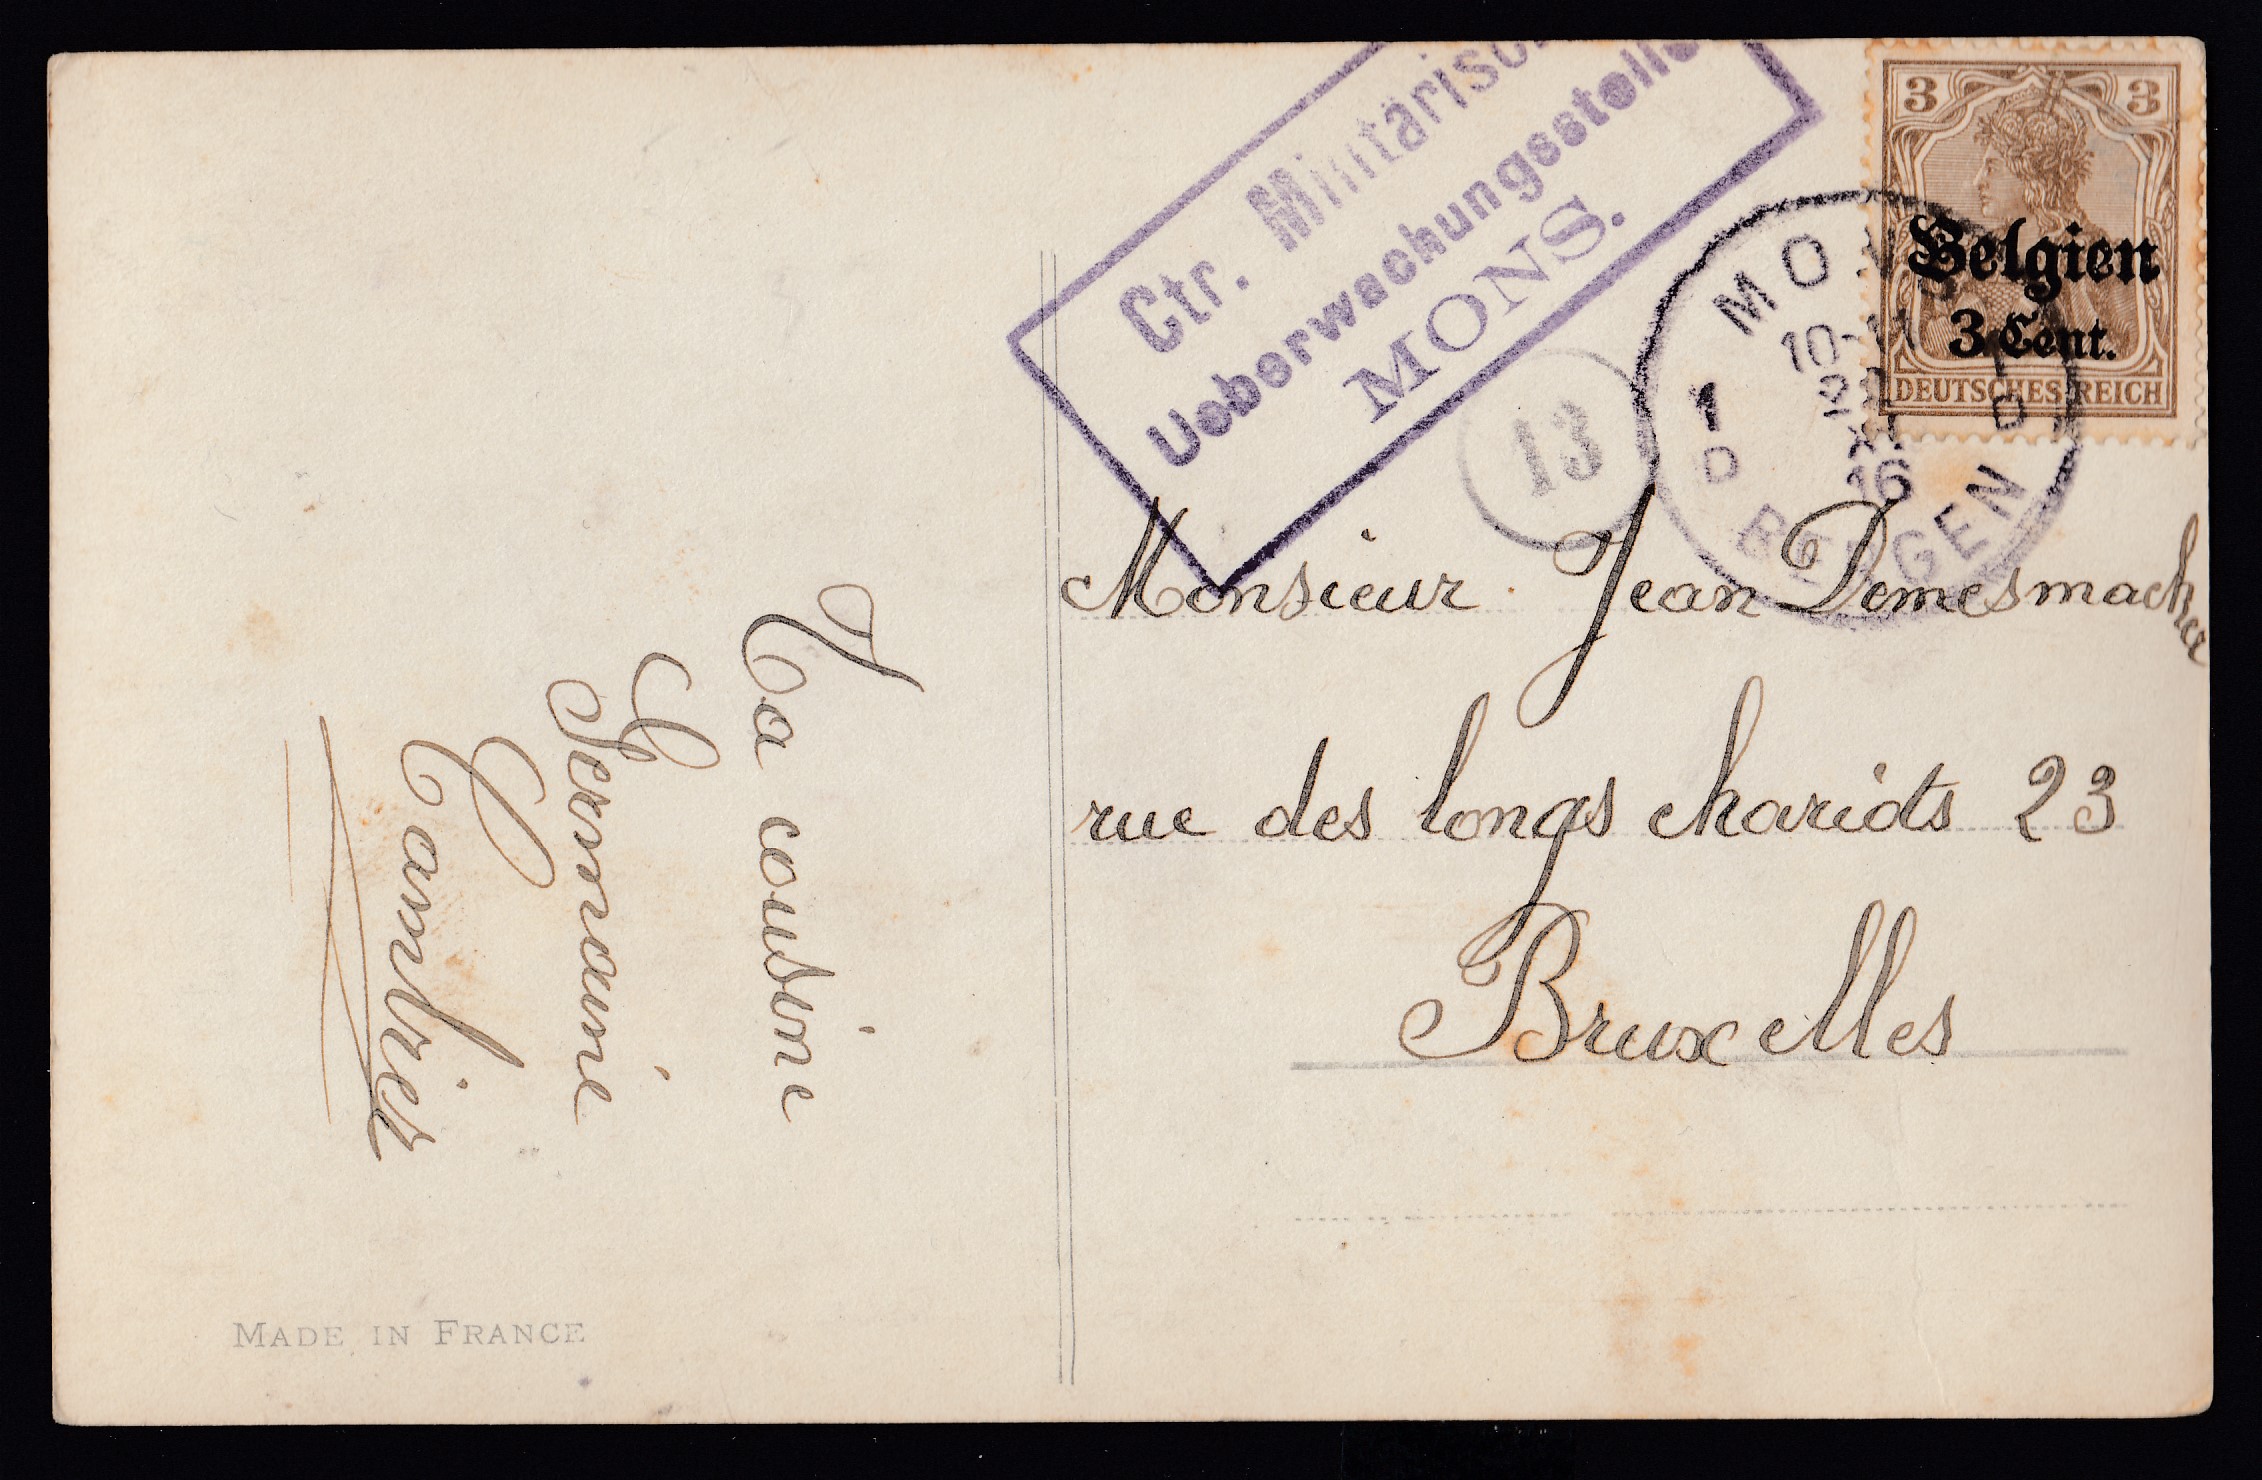 Ctr. Militärisc
Ueberwachungsstelle
MONS.
3 3
Belgien
3 Cent.
DEUTSCHES REICH
MONS
10-11
XI
16
1 1
D D
BERGEN
13
Monsieur Jean Demesmacker
rue des longs chariots 23
Bruxelles
Ta cousine
Germaine
Cambier
MADE IN FRANCE